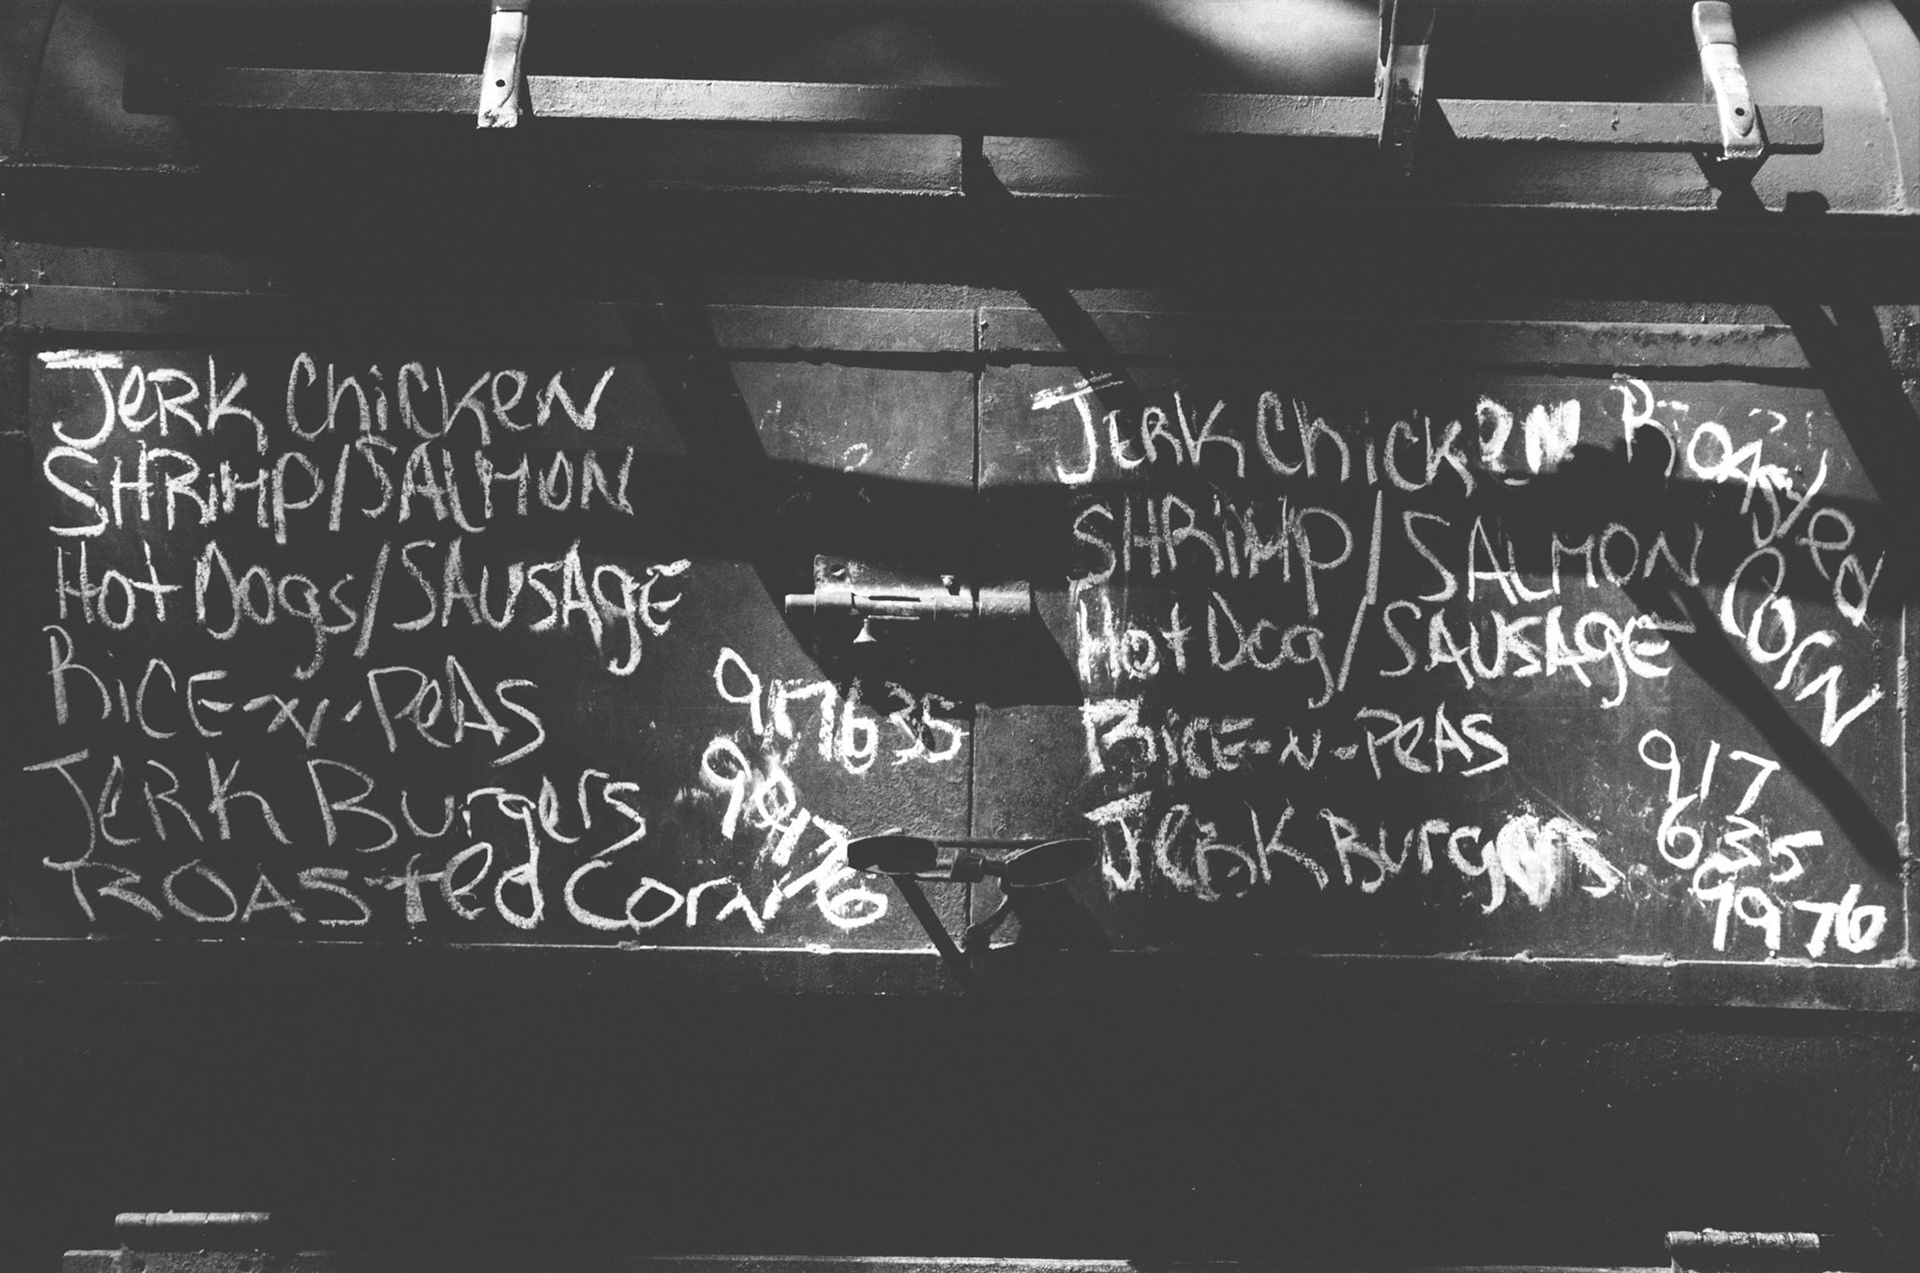 JerK ChicKeN
SHRiMP/SALMON
Hot Dogs/SAUSAgE
RiCE-N-PeAS
JerK Burgers
ROASted CorN
917635
9976
JerK ChickeN
SHRiMP/SALMON
Hot Dog/SAUSAgE
RiCE-N-PeAS
JerK Burgers
ROASted
CorN
917
635
9976